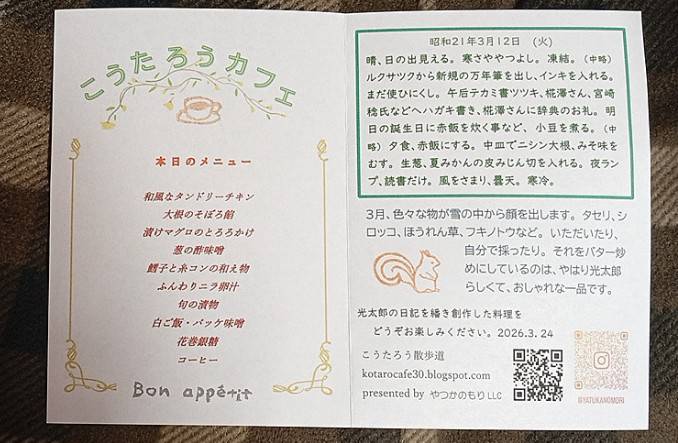 こうたろうカフェ
本日のメニュー
和風なタンドリーチキン
大根のそぼろ餡
漬けマグロのとろろかけ
葱の酢味噌
鱈子と糸コンの和え物
ふんわりニラ卵汁
旬の漬物
白ご飯・バッケ味噌
花巻銀糖
コーヒー
Bon appétit
昭和21年3月12日 (火)
晴、日の出見える。寒さややつよし。凍結。(中略)
ルクサツクから新規の万年筆を出し、インキを入れる。
まだ使ひにくし。午后テカミ書ツツキ、椛澤さん、宮崎
稔氏などへハガキ書き、椛澤さんに辞典のお礼。明
日の誕生日に赤飯を炊く事など、小豆を煮る。(中
略)夕食、赤飯にする。中皿でニシン大根、みそ味を
むす。生葱、夏みかんの皮みじん切を入れる。夜ラン
プ、読書だけ。風をさまり、曇天。寒冷。
3月、色々な物が雪の中から顔を出します。タセリ、シ
ロッコ、ほうれん草、フキノトウなど。いただいたり、
自分で採ったり。それをバター炒
めにしているのは、やはり光太郎
らしくて、おしゃれな一品です。
光太郎の日記を繙き創作した料理を
どうぞお楽しみください。2026.3.24
こうたろう散歩道
kotarocafe30.blogspot.com
presented by やつかのもり LLC
@YATUKANOMORI